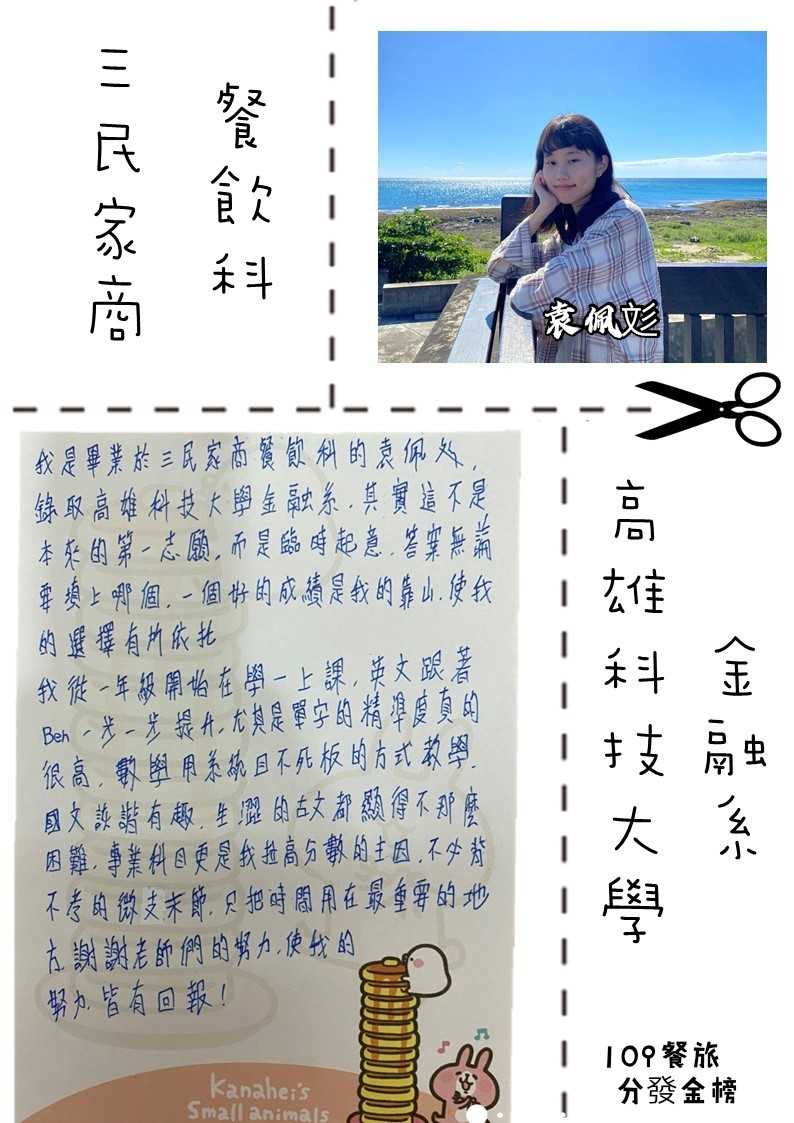 三民家商
餐飲科
袁佩彣
我是畢業於三民家商餐飲科的袁佩彣,
錄取高雄科技大學金融系,其實這不是
本來的第一志願,而是臨時起意,答案無論
要填上哪個,一個好的成績是我的靠山,使我
的選擇有所依托
我從一年級開始在學一上課,英文跟著
Ben一步一步提升,尤其是單字的精準度真的
很高,數學用系統且不死板的方式教學,
國文詼諧有趣,生澀的古文都顯得不那麼
困難,專業科目更是我拉高分數的主因,不必背
不考的微支末節,只把時間用在最重要的地
方,謝謝老師們的努力,使我的
努力皆有回報!
Kanahei's
Small animals
高雄科技大學
金融系
109餐旅
分發金榜